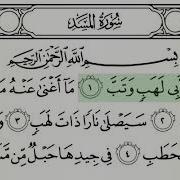 سُورَةُ المَسَدِ
بِسْمِ اللَّهِ الرَّحْمَٰنِ الرَّحِيمِ
أَبِي لَهَبٍ وَتَبَّ ۝١ مَا أَغْنَىٰ عَنْهُ
۝٢ سَيَصْلَىٰ نَارًا ذَاتَ لَهَبٍ ۝٣
۝٤ فِي جِيدِهَا حَبْلٌ مِّن